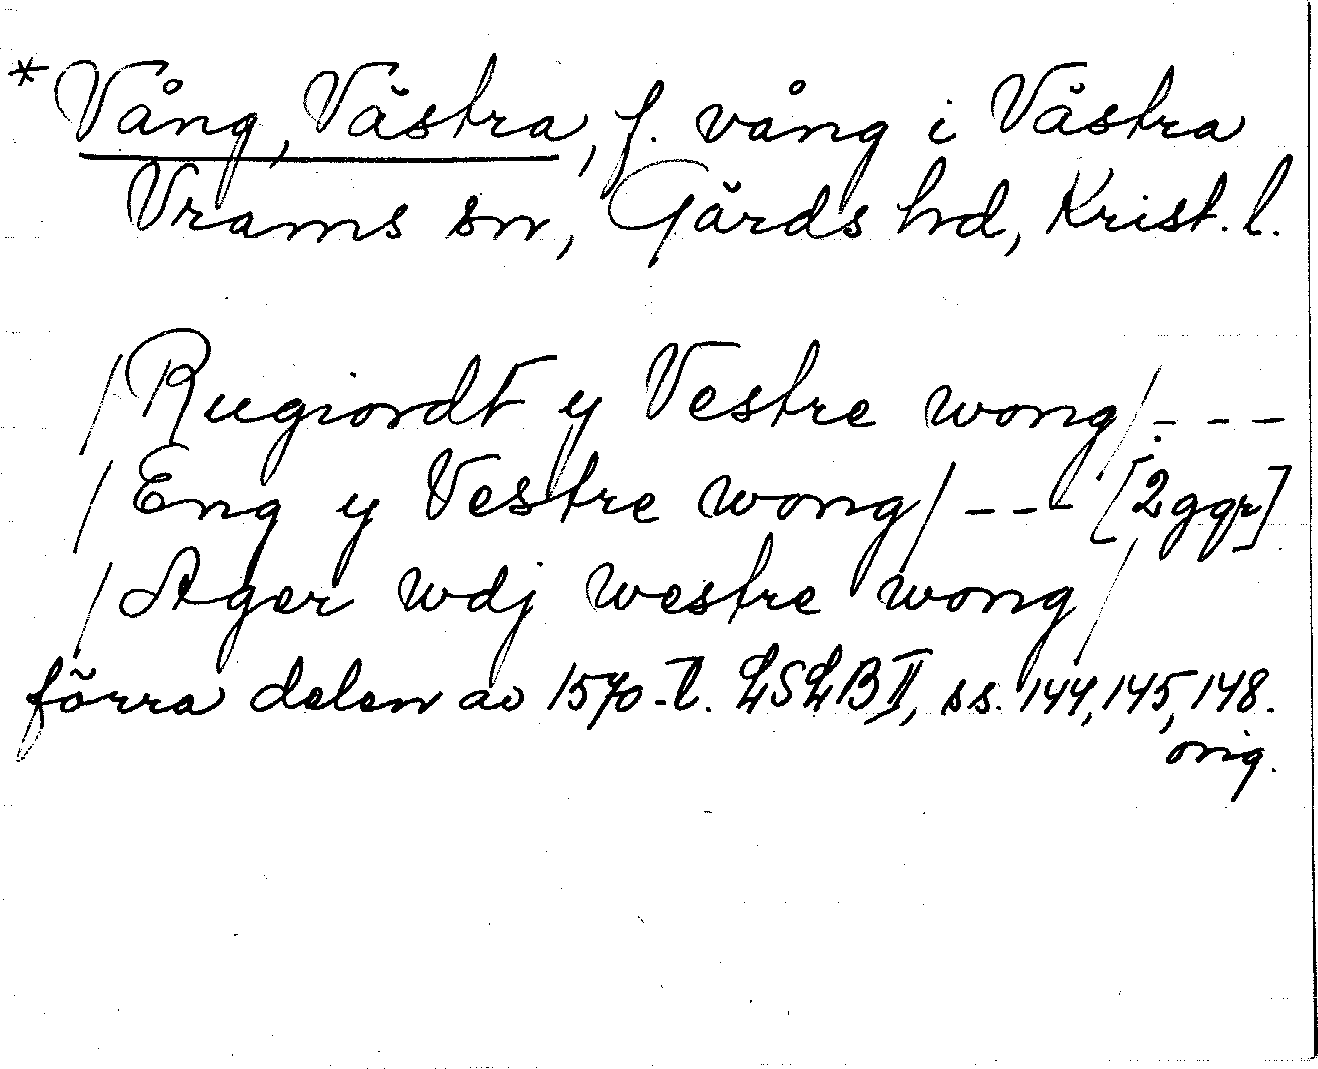 * Vång, Västra, f. vång i Västra
Vrams sn, Gärds hd, Krist. l.
/Rugiordt y Vestre wong/. - - -
/Eng y Vestre wong/ - - - [2 ggr]
/Ager wdj westre wong/
förra delen av 1570-t. LSLB II, ss. 144, 145, 148.
orig.